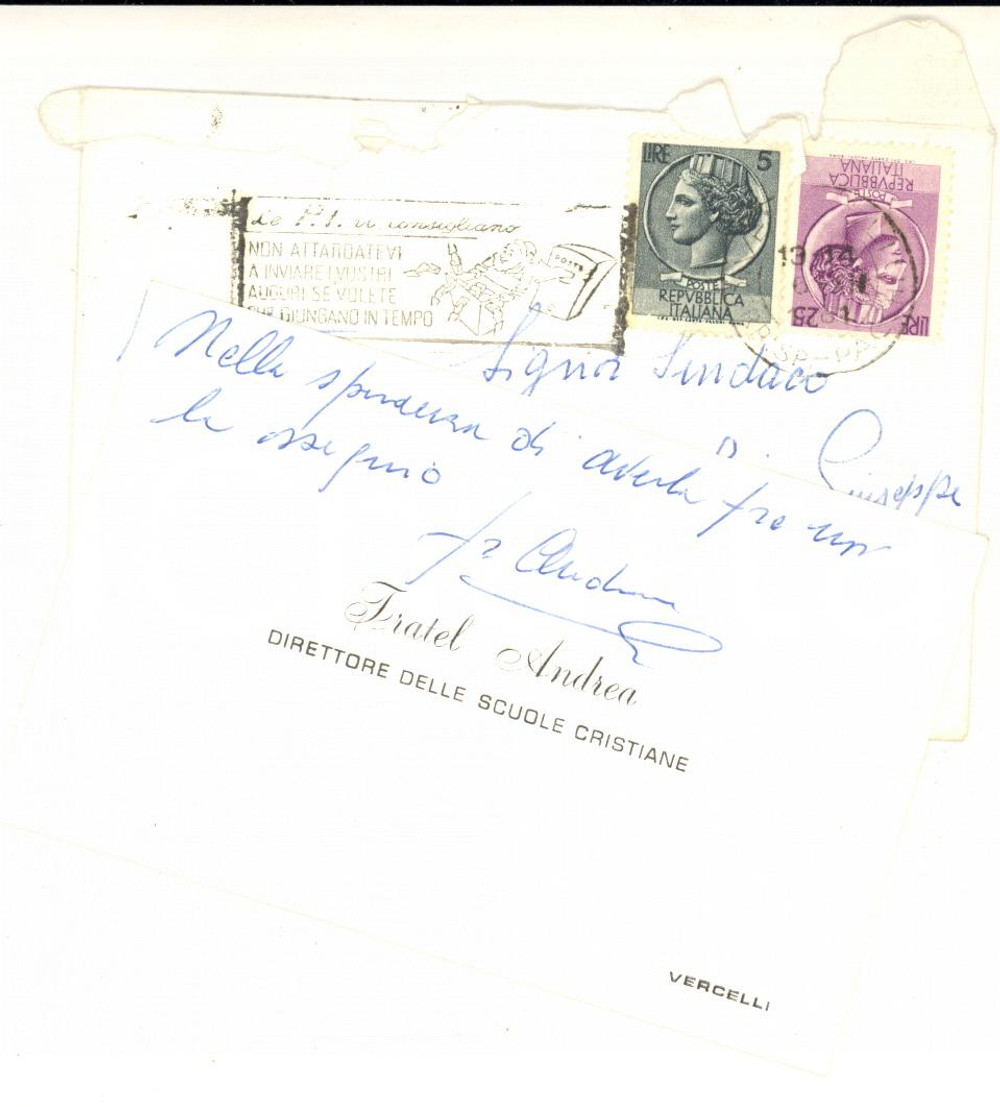 Le P.T. vi consigliano
NON ATTARDATEVI
A INVIARE I VOSTRI
AUGURI SE VOLETE
CHE GIUNGANO IN TEMPO
LIRE 5
POSTE
REPVBBLICA
ITALIANA
LIRE 25
POSTE
REPVBBLICA
ITALIANA
13-14
Signor Sindaco
Giuseppe
Nella speranza di averla fra noi
la ossequio
fr Andrea
Fratel Andrea
DIRETTORE DELLE SCUOLE CRISTIANE
VERCELLI